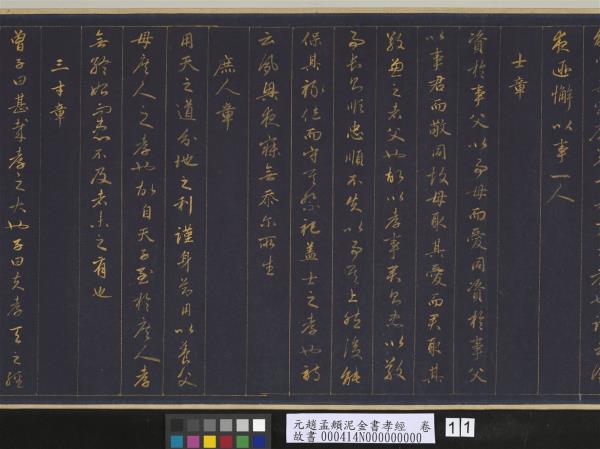 夜匪懈以事一人
士章
資於事父以事母而愛同資於事父
以事君而敬同故母取其愛而君取其
敬兼之者父也故以孝事君則忠以敬
事長則順忠順不失以事其上然後能
保其祿位而守其祭祀蓋士之孝也詩
云夙興夜寐無忝尔所生
庶人章
用天之道分地之利謹身節用以養父
母庶人之孝也故自天子至於庶人孝
無終始而患不及者未之有也
三才章
曾子曰甚哉孝之大也子曰夫孝天之經
元趙孟頫泥金書孝經 卷
故書000414N000000000
11